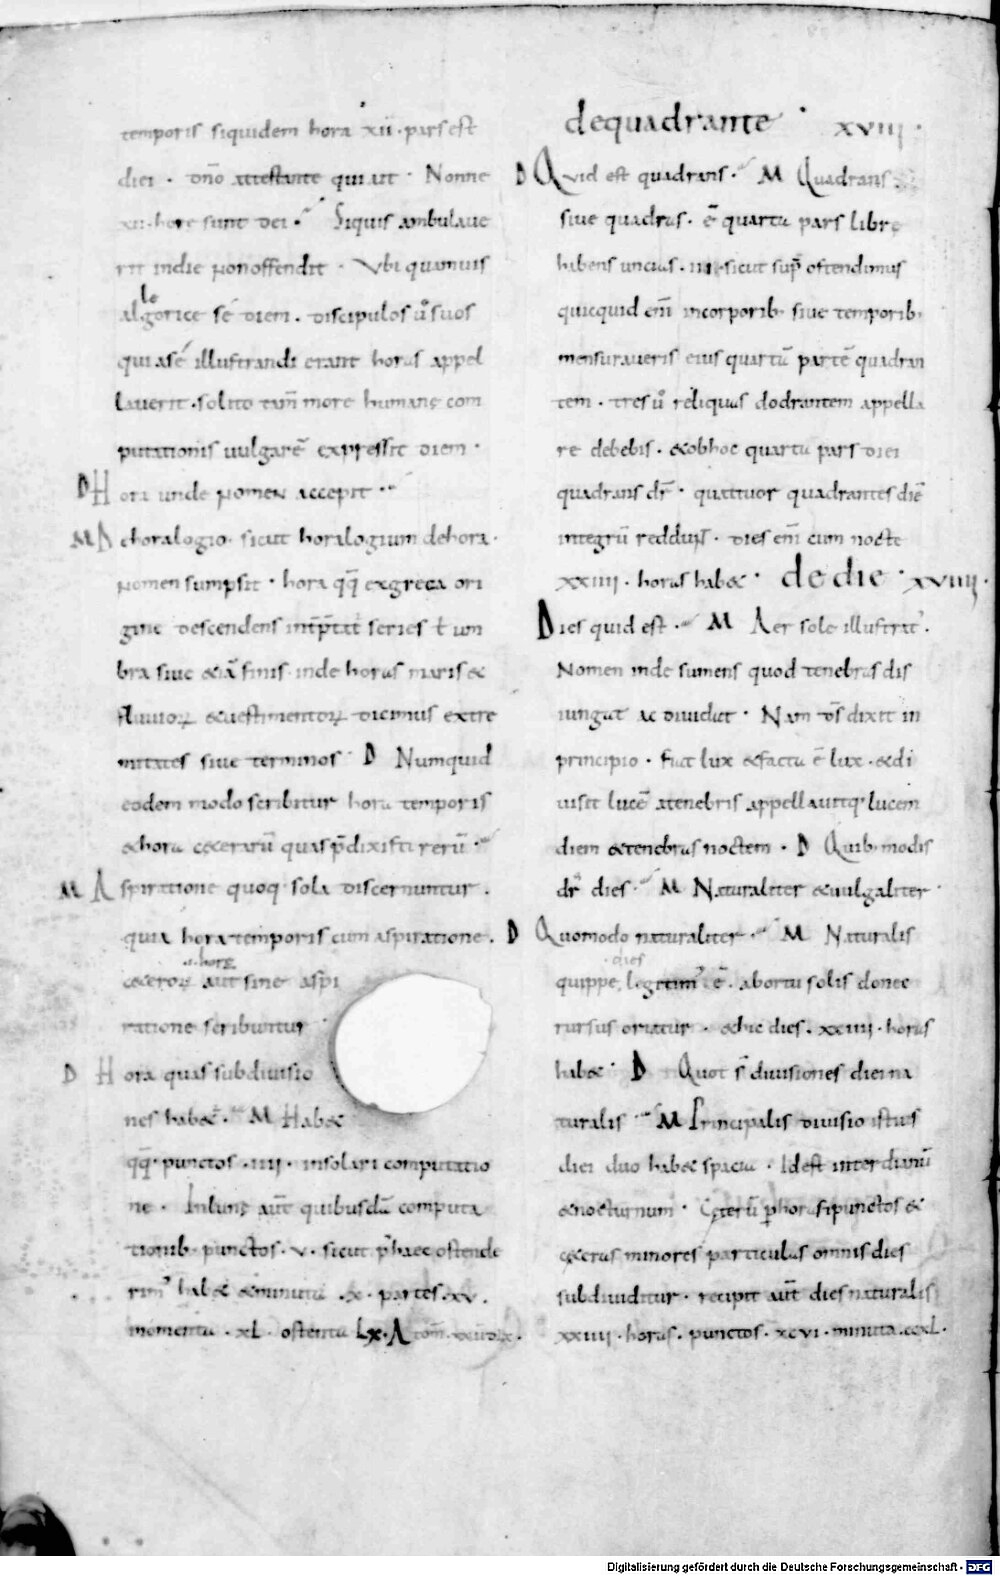 temporis siquidem hora xii · pars est
diei · dn̄o attestante qui ait · Nonne
xii · hore sunt dei · Siquis ambulaue
rit in die non offendit · Vbi quamuis
algorice sé diem · discipulos ů suos
le
qui a sé illustrandi erant horas appel
lauerit · solito tam̄ more humanę com
putationis uulgarē expressit diem ·
D Hora unde nomen accepit ·
M A choralogio · sicut horalogium de hora ·
nomen sumpsit · hora qq̄ ex greca ori
gine descendens int̄p̄tat̄ series ł um
bra siue & iā finis · inde horas maris &
fluuioꝝ & uestimentoꝝ dicimus extre
mitates siue terminos · D Numquid
eodem modo scribitur hora temporis
& hora ceterarū quas p̄dixisti rerū ·
M Aspiratione quoq · sola discernuntur ·
quia hora temporis cum aspiratione ·
· hore
ceteroꝝ aut sine aspi
ratione scribuntur
D Hora quas subdiuisio
nes hab& · M Hab&
qq̄ · punctos · iiii · in solari computatio
ne · In lunę aūt quibusdā computa
tionib · punctos · v · sicut p̄ haec ostende
rim' hab& & minuta · x · partes · xv ·
momenta · xL · ostenta Lx · Atom̄
de quadrante · xviii ·
D Quid est quadrans · M Quadrans ·
siue quadras · ē quarta pars librę
habens uncias · iii · sicut sup̄ ostendimus
quicquid enī in corporib · siue temporib ·
mensuraueris eius quartā partē quadran
tem · tres ů reliquas dodrantem appella
re debebis · & ob hoc quarta pars diei
quadrans dr̄ · quattuor quadrantes diē
integrū reddunt · dies enī cum nocte
xxiiii · horas hab& · de die · xviiii ·
Dies quid est · M Aer sole illustrat' ·
Nomen inde sumens quod tenebras dis
iungat ac diuidat · Nam d̄s dixit in
principio · fiat lux & facta ē lux · & di
uisit lucē a tenebris appellauitq · lucem
diem & tenebras noctem · D Quib · modis
dr̄ dies · M Naturaliter & uulgaliter ·
D Quomodo naturaliter · M Naturalis
· dies
quippe legitim' ē · ab ortu solis donec
rursus oriatur · & hic dies · xxiiii · horas
hab& · D Quot s̄ diuisiones diei na
turalis · M Principalis diuisio istius
diei duo hab& spacia · Id est inter dianū
& nocturnum · Ceterū p horas si punctos &
c&eras minores particulas omnis dies
subdiuiditur · recipit aūt dies naturalis
xxiiii · horas · punctos · xcvi · minuta · ccxL ·
Digitalisierung gefördert durch die Deutsche Forschungsgemeinschaft - DFG